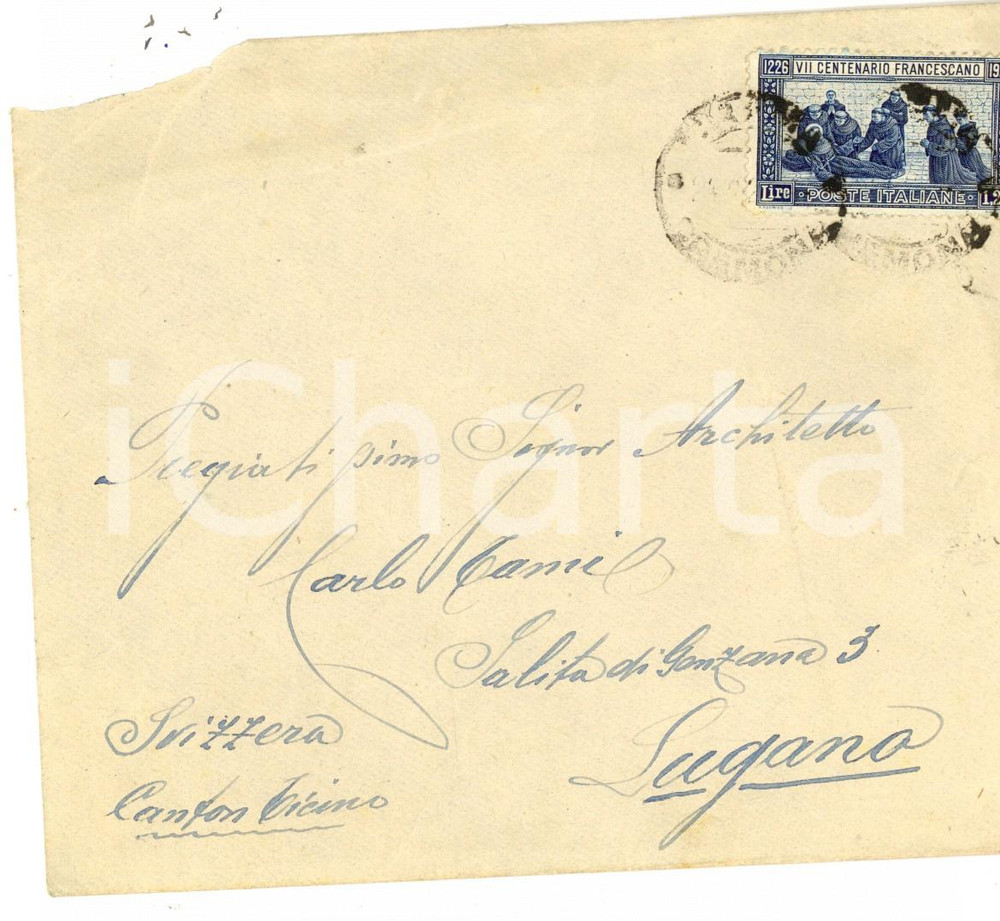 1226 VII CENTENARIO FRANCESCANO 19
Lire · POSTE ITALIANE · 1,2
iCharta
Pregiatissimo Signor Architetto
Carlo Tami
Salita di Genzana 3
Lugano
Svizzera
Canton Ticino